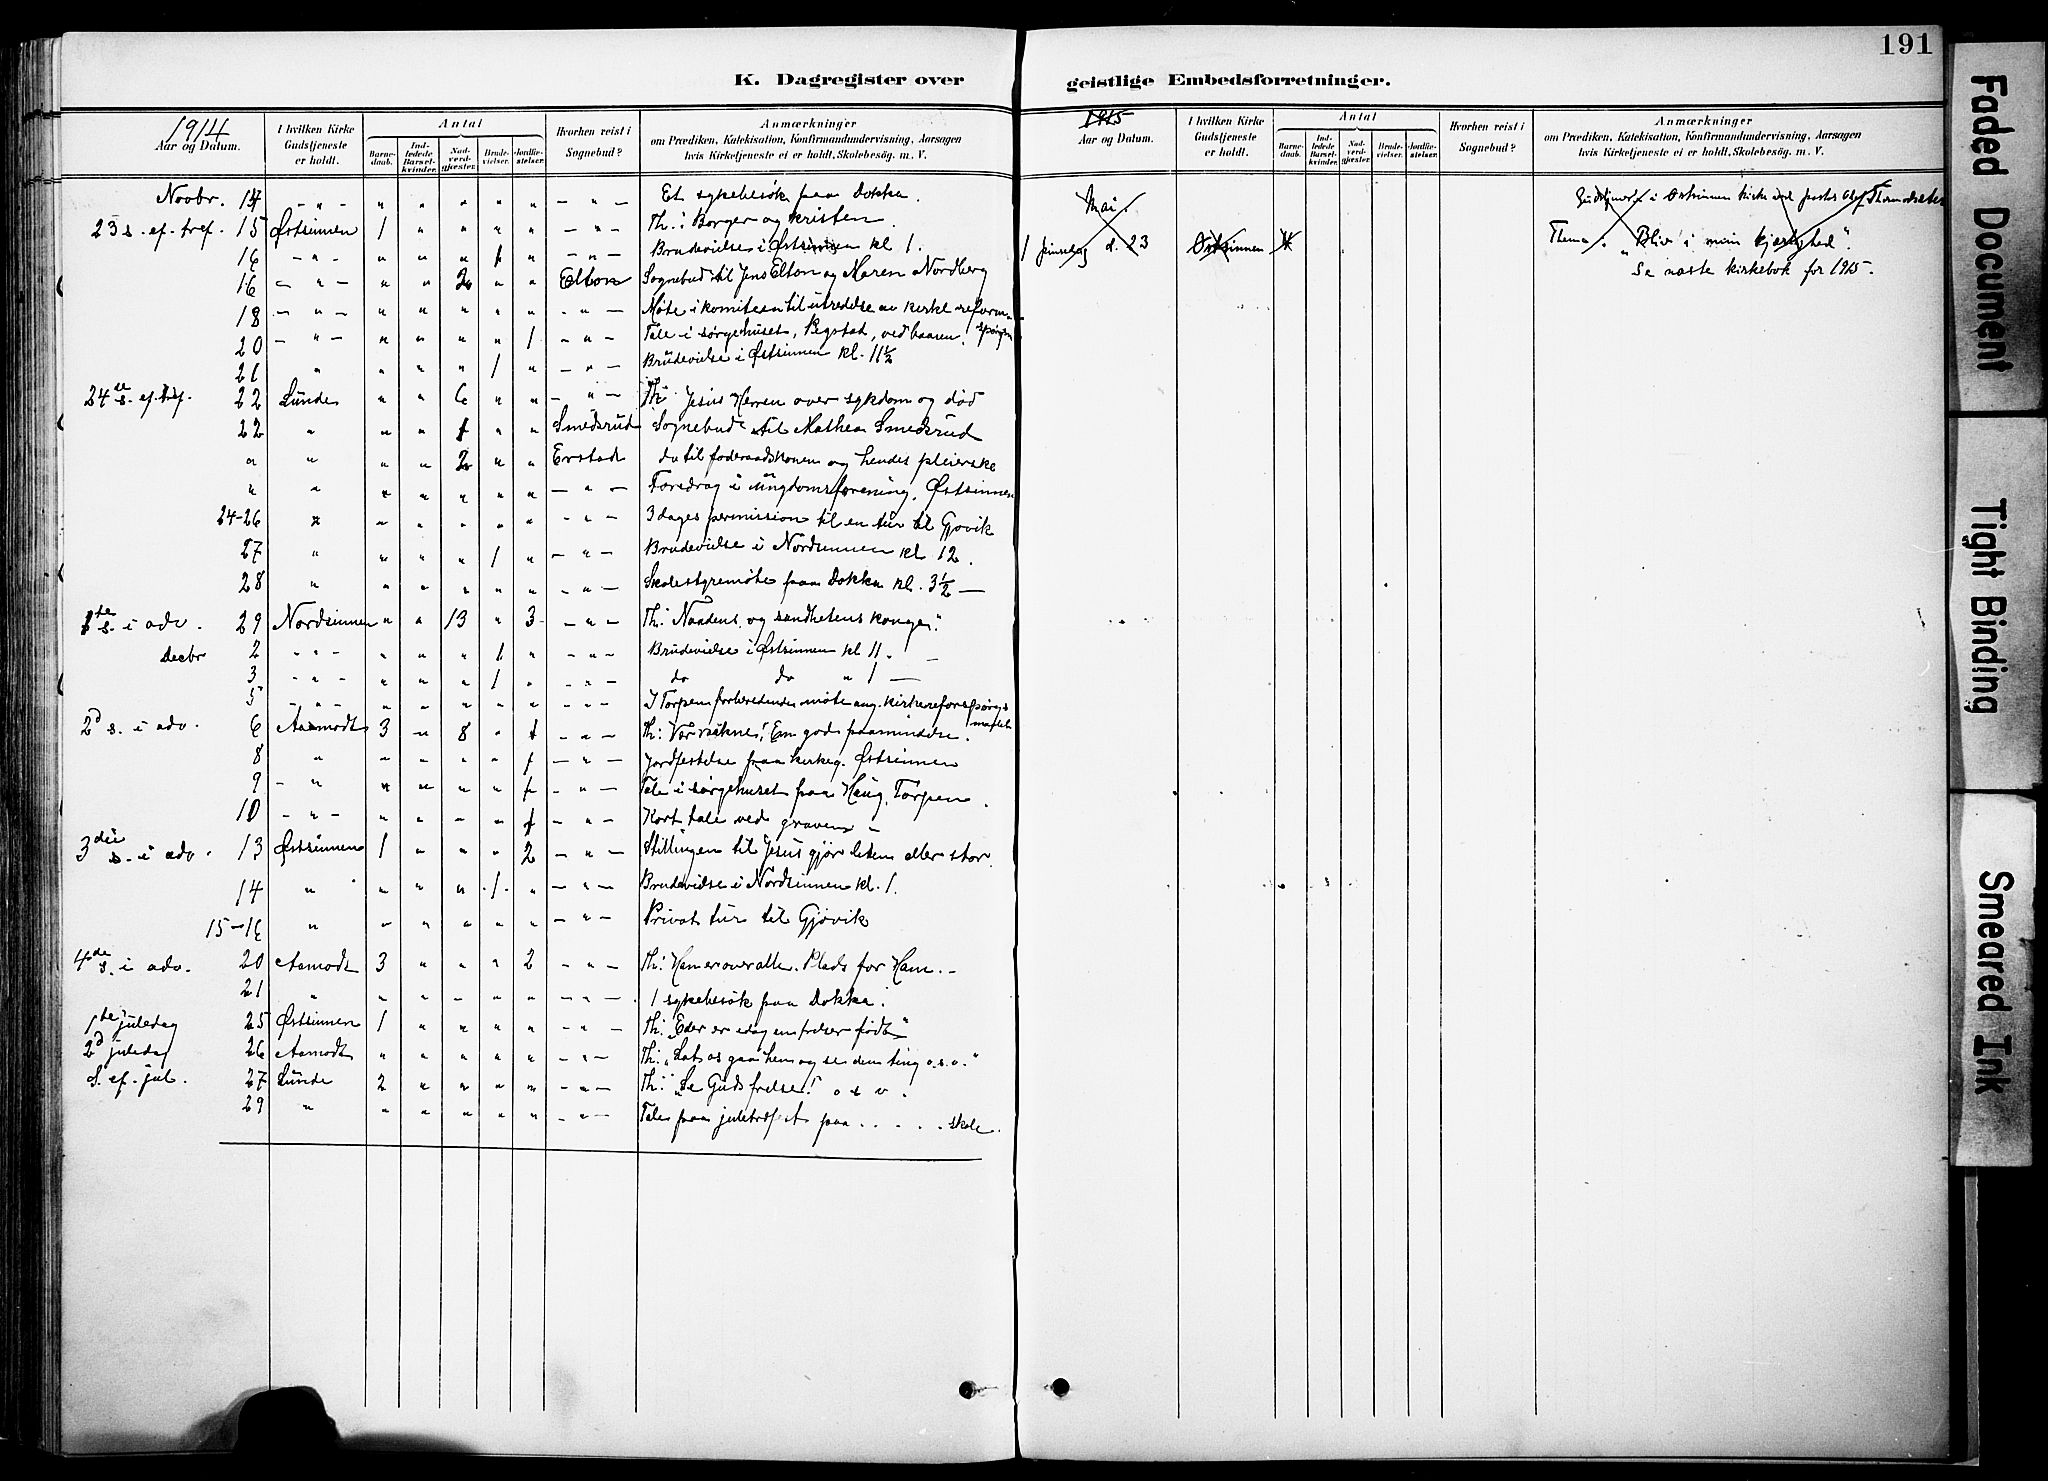 K. Dagregister over
1914
Aar og Datum.
I hvilken Kirke Gudstjeneste er holdt.
Antal
Barnedaab.
Indledede Barselkvinder.
Nadverdgjester.
Brudevielser.
Jordfæstelser.
Hvorhen reist i Sognebud?
Anmærkninger
om Prædiken, Katekisation, Konfirmandundervisning, Aarsagen
hvis Kirketjeneste ei er holdt, Skolebesög. m. V.
Novbr. 14 — " — " " " " " — " — Et sykebesök paa Dokka.
23 s. ef. tref. 15 Østsinnen 1 " " " " — " — Th.: Borger og kristen.
16 — " — " " " 1 " — " — Brudevielse i Østsinnen kl. 1.
16 — " — " " 2 " " Elton Sognebud til Jens Elton og Maren Nordberg
18 — " — " " " " " — " — Möte i komiteen til utredelse av kirkl. reform-
spörgsm
20 — " — " " " " 1 — " — Tale i sørgehuset, Pegstad, ved baaren.
21 " " " " 1 " — " — Brudevielse i Østsinnen kl. 11½
24de s. ef. tref. 22 Lunde " " 6 " " — " — Th: Jesus Herren over sykdom og död
22 " " " 1 " " Smedsrud Sognebud til Mathea Smedsrud
" " " " 2 " " Erstad do til föderaadskonen og hendes pleierske
" " " " " " " — " — Foredrag i ungdomsforening, Østsinnen
24-26 " " " " " " — " — 3 dages permission til en tur til Gjövik
27 " " " " 1 " — " — Brudevielse i Nordsinnen kl 12.
28 " " " " " " — " — Skolestyremöte paa Dokka kl. 3½ —
1ste s. i adv. 29 Nordsinnen " " 13 " 3 — " — Th: Naadens og sandhetens konge."
Decbr 2 " " — " " " 1 " — " — Brudevielse i Østsinnen kl 11. —
3 — " — " " " 1 " — " — do do " 1 —
5 — " — " " " " " — " — I Torpen forberedende möte ang. kirkereformspörgs
maalet
2d s. i adv. 6 Aamodt 3 " 8 " 1 — " — Th: Vær vaakne! En god paamindelse.
8 " " " " " 1 — " — Jordfestelse paa kirkeg. Østsinnen
9 — " " " " " 1 — " — Tale i sørgehuset paa Haug, Torpen.
10 — " — " " " " 1 — " — Kort tale ved graven —
3die s. i adv. 13 Østsinnen 1 " " " 2 — " — Stillingen til Jesus gjör liten eller stor.
14 " " " " 1 " — " — Brudevielse i Nordsinnen kl. 1.
15-16 " " " " " " — " — Privat tur til Gjövik
4de s. i adv. 20 Aamodt 3 " " " 2 — " — Th: Han er over alle. Plads for Ham. —
21 " " " " " " — " — 1 sykebesök paa Dokka.
1ste juledag 25 Østsinnen 1 " " " " — " — Th: "Eder er idag en frelser födt"
2d juledag 26 Aamodt " " " " " — " — Th: "Lat os gaa hen og se den ting o.s.v."
S. ef. jul. 27 Lunde 2 " " " " — " — Th: "Se Guds frelse!" o s v.
29 " " " " " " — " — Tale paa juletræfest paa . . . . . skole.
191
geistlige Embedsforretninger.
1915
Aar og Datum.
I hvilken Kirke Gudstjeneste er holdt.
Antal
Barnedaab.
Indledede Barselkvinder.
Nadverdgjester.
Brudevielser.
Jordfæstelser.
Hvorhen reist i Sognebud?
Anmærkninger
om Prædiken, Katekisation, Konfirmandundervisning, Aarsagen
hvis Kirketjeneste ei er holdt, Skolebesög. m. V.
Mai. i Østsinnen kirke ved
1 pinsedag d. 23 Østsinnen Thema. "Bliv i min kjærlighed".
Se næste kirkebok for 1915.
Faded Document
Tight Binding
Smeared Ink